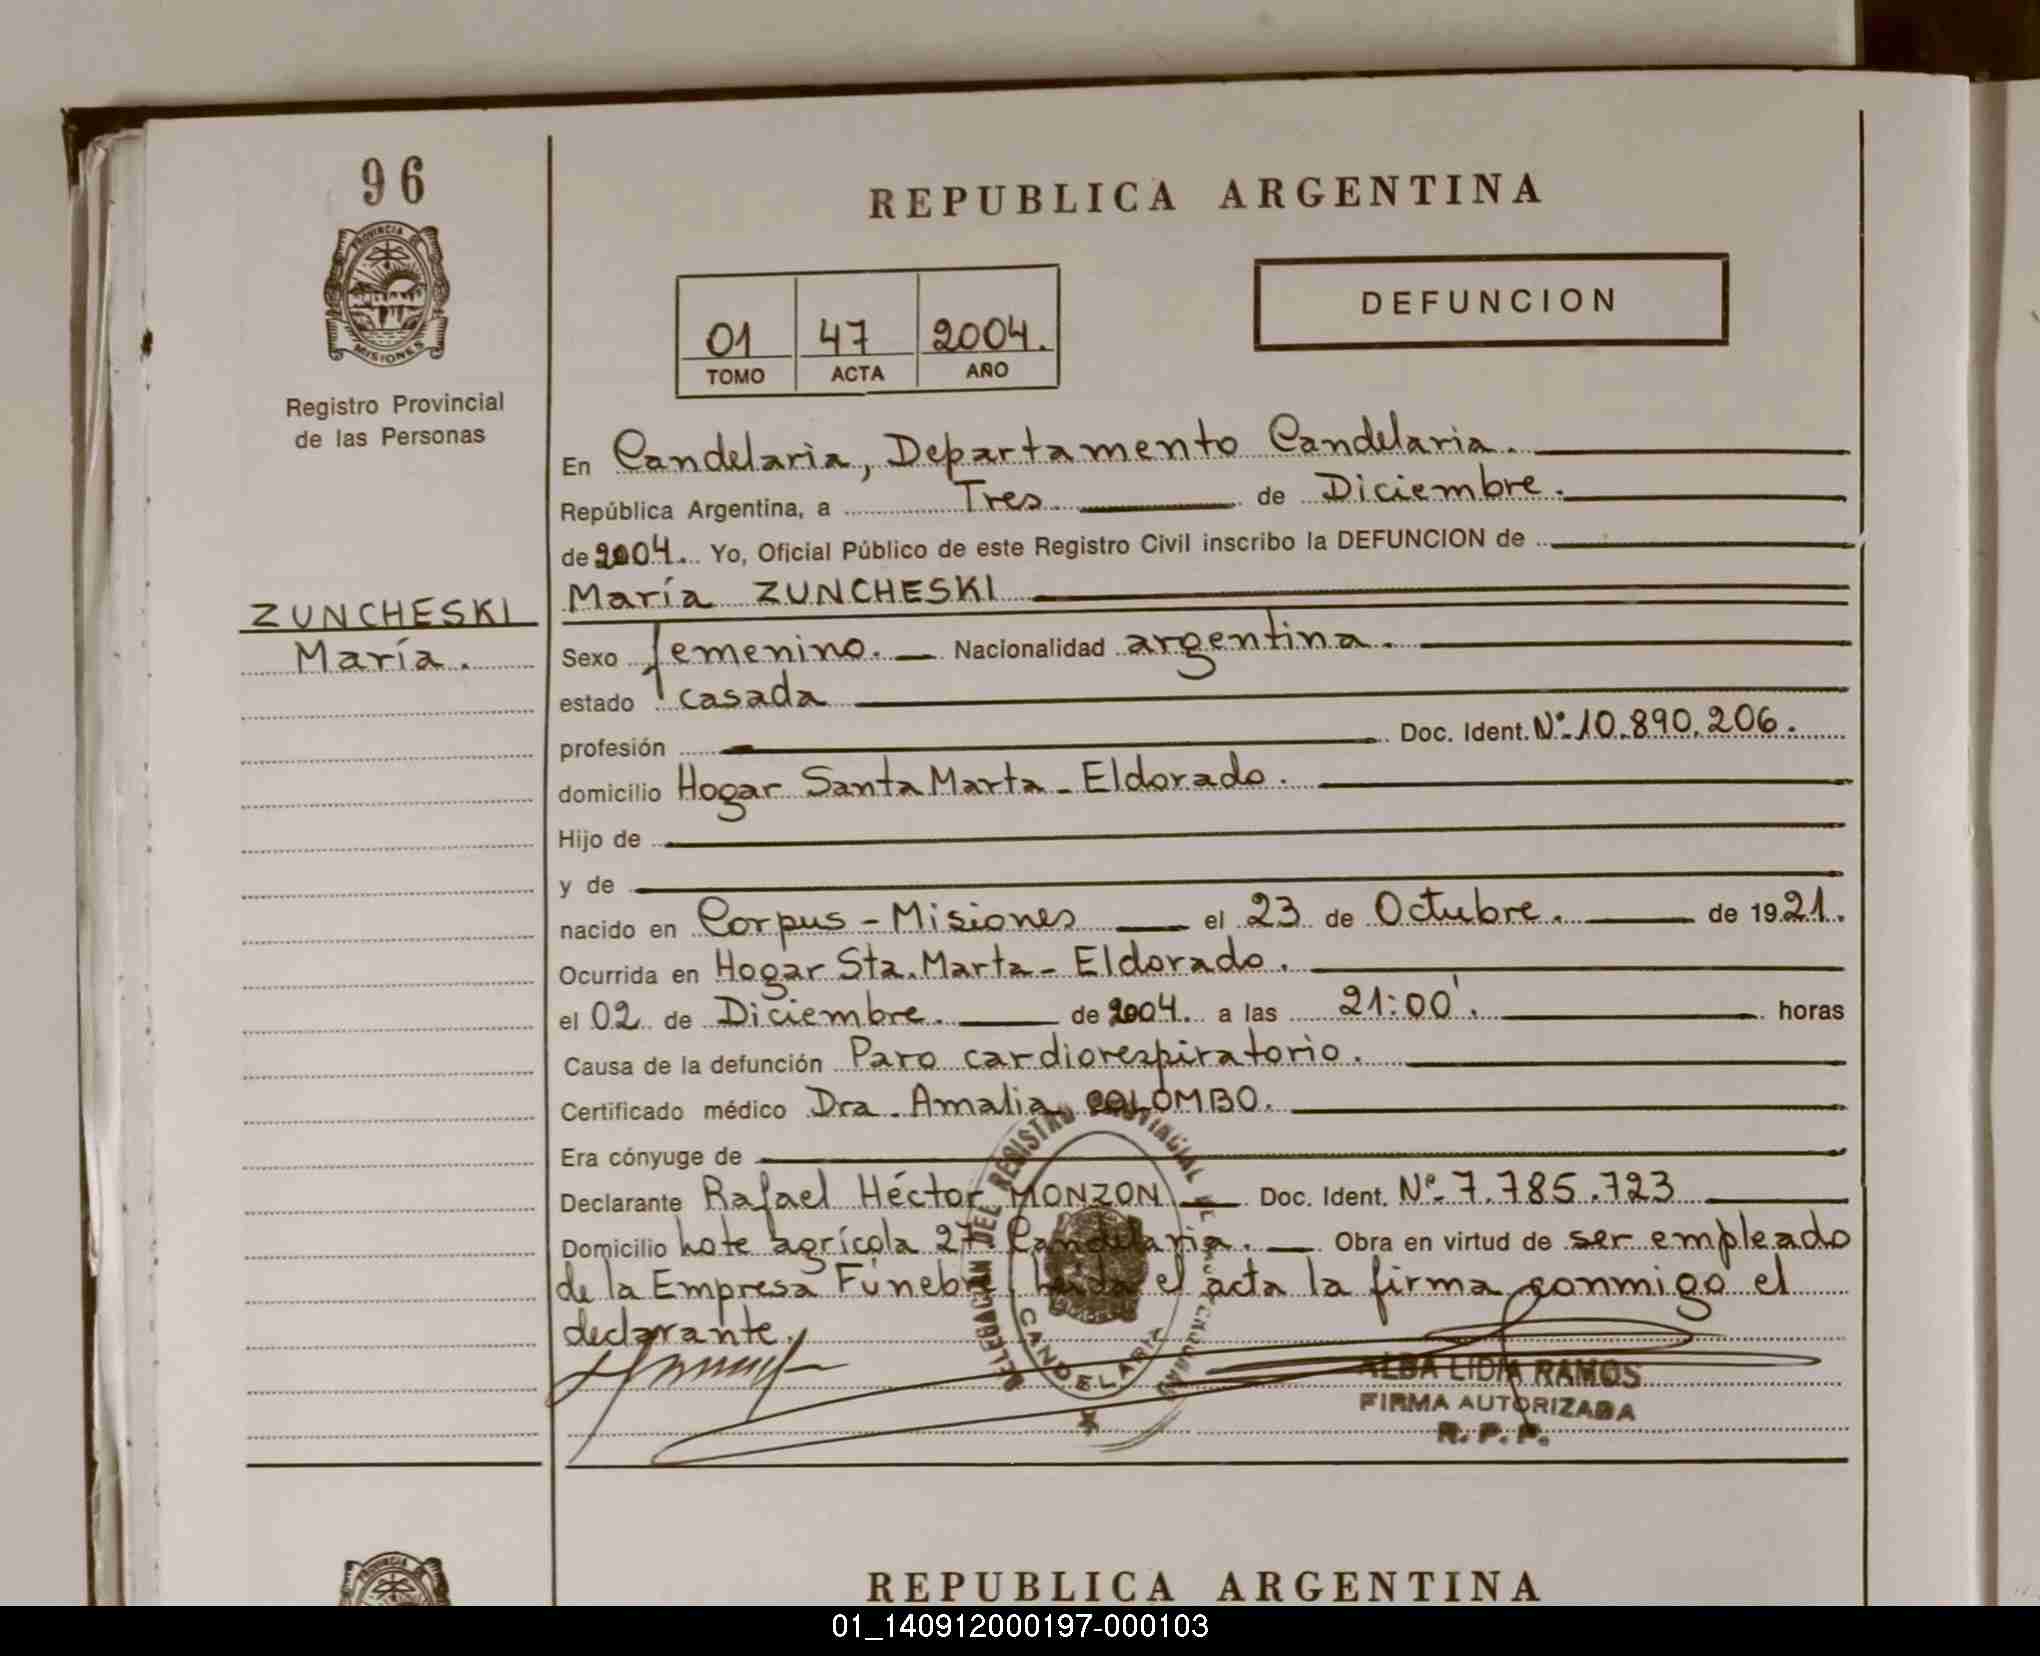 96
REPUBLICA ARGENTINA
PROVINCIA DE
MISIONES
Registro Provincial
de las Personas
01 47 2004.
TOMO ACTA AÑO
DEFUNCION
En Candelaria, Departamento Candelaria.
República Argentina, a Tres de Diciembre.
de 2004. Yo, Oficial Público de este Registro Civil inscribo la DEFUNCION de
María ZUNCHESKI
ZUNCHESKI
María.
Sexo femenino. Nacionalidad argentina.
estado casada
profesión Doc. Ident. Nº 10.890.206.
domicilio Hogar Santa Marta - Eldorado.
Hijo de
y de
nacido en Corpus - Misiones el 23 de Octubre. de 1921.
Ocurrida en Hogar Sta. Marta - Eldorado.
el 02 de Diciembre. de 2004. a las 21:00'. horas
Causa de la defunción Paro cardiorespiratorio.
Certificado médico Dra. Amalia COLOMBO.
Era cónyuge de
Declarante Rafael Héctor MONZON Doc. Ident. Nº 7.785.723
Domicilio Lote agrícola 27 Candelaria. Obra en virtud de ser empleado
de la Empresa Fúnebre, leída el acta la firma conmigo el
declarante.
REGISTRO PROVINCIAL
CANDELARIA
ALBA LIDIA RAMOS
FIRMA AUTORIZADA
R. P. P.
PROVINCIA
REPUBLICA ARGENTINA
01_140912000197-000103